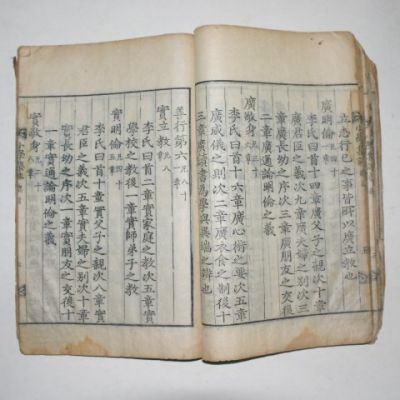 立志行已之事皆所以廣立敎也
廣明倫 凡四十一章
李氏曰首十四章廣父子之親次十章
廣君臣之義次九章廣夫婦之別次三
章廣長幼之序次三章廣朋友之交後
二章廣通論明倫之義
廣敬身
李氏曰首十六章廣心術之要次五章
廣威儀之則次二章廣衣食之制後十
三章廣讀書爲學與異端之辨也
善行第六 凡八十一章
實立敎 凡八章
李氏曰首二章實家庭之敎次
學校之敎後 章實師弟子之敎
實明倫 凡四十五章
李氏曰首十章實父子之親次八章實
君臣之義次五章實夫婦之別次十章
實長幼之序次一章實朋友之交後十
一章實通論明倫之義
實敬身